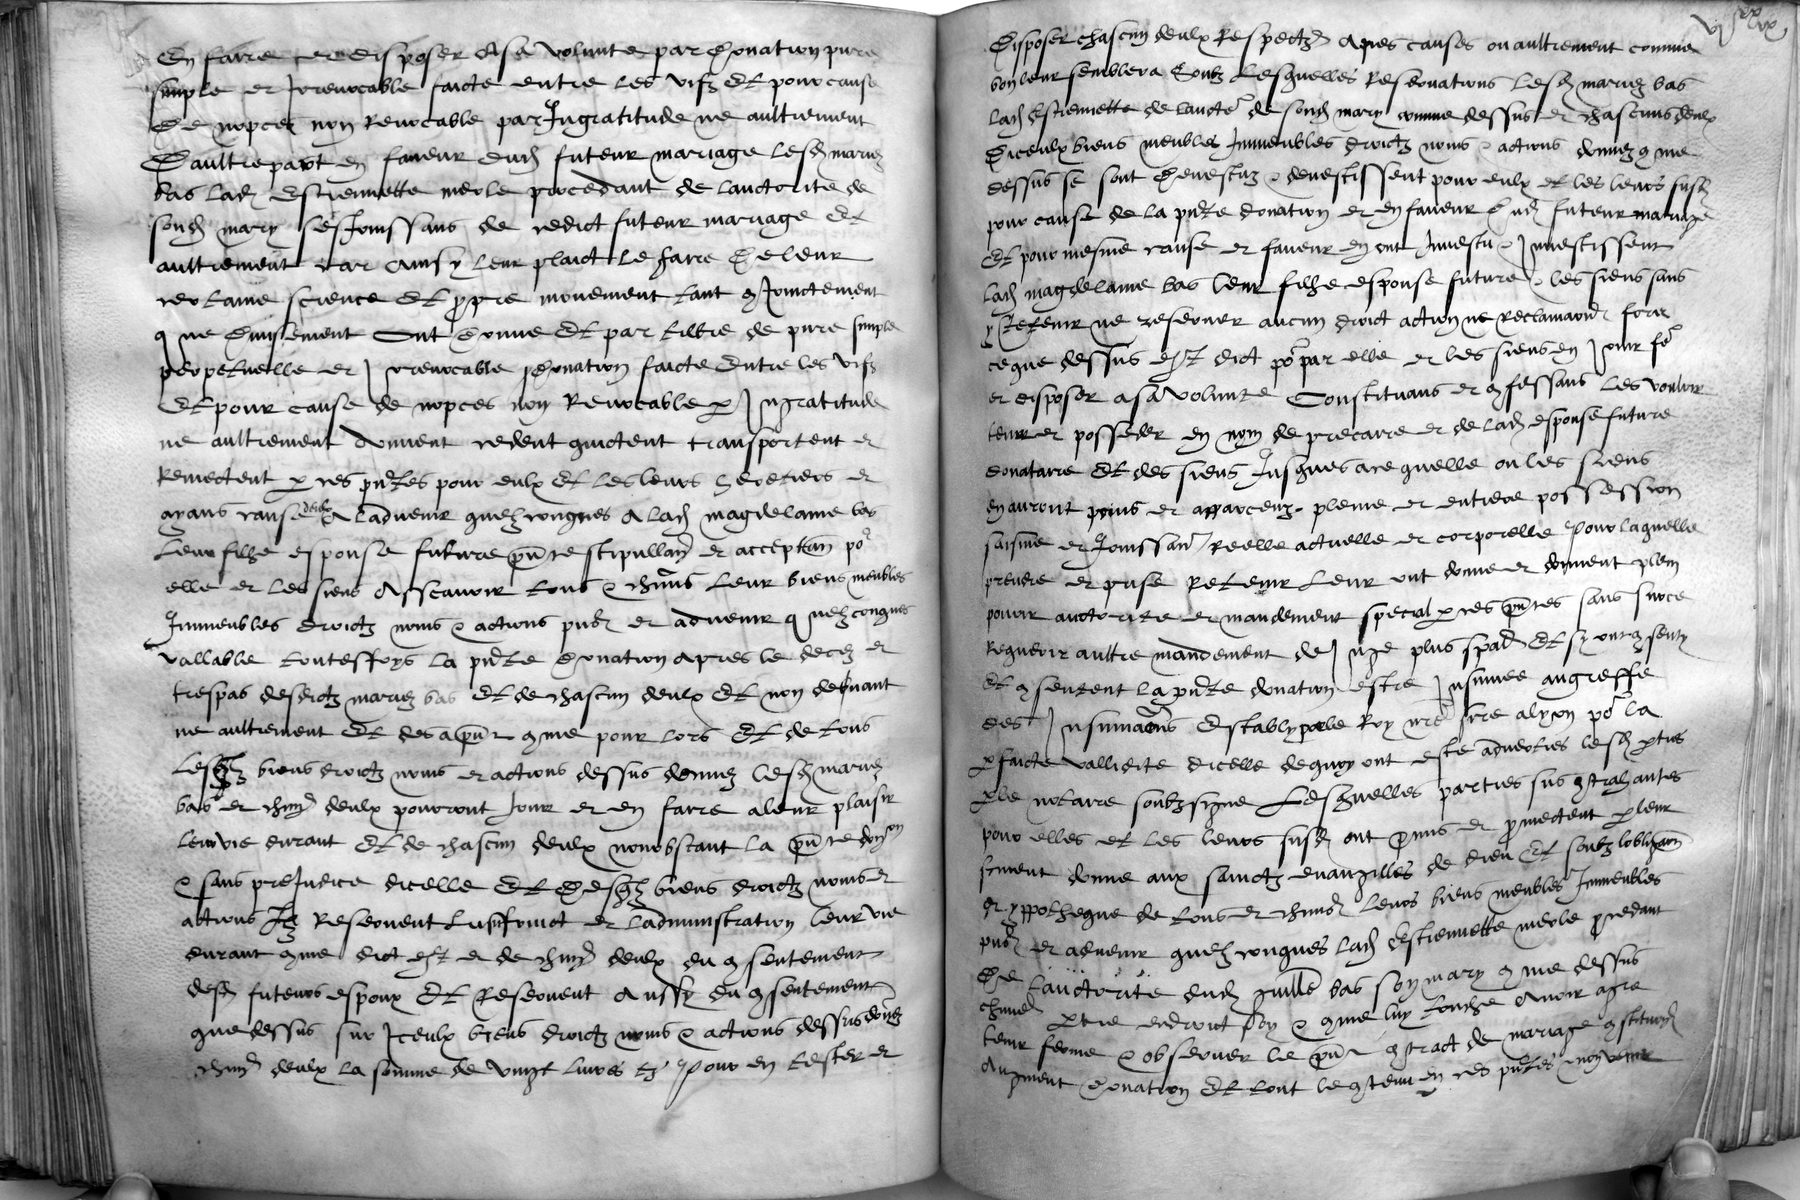 En faire et disposer A sa volunte par Donation pure
simple et Irrevocable faicte entre les vifz Et pour cause
De nopces non Revocable par Ingratitude ne aultrement
D'aultre part en faveur dud futeur mariage lesd mariez
bas lad Estiennette merle procedant de lauctorite de
sond mary sesjouissans de cedict futeur mariage Et
aultrement car Ainsy leur plaict le faire De leur
certaine science Et propre mouvement tant conjoinctement
que Divisement Ont Donne Et par tiltre de pure simple
perpetuelle et Irrevocable Donation faicte Entre les vifz
Et pour cause de nopces non Revocable p Ingratitude
ne aultrement donnent cedent quictent transportent et
Remectent p ces pntes pour eulx Et les leurs heretiers et
ayans cause deulx A ladvenir quelzconques A lad magdelaine bas
leur filhe espouse future pnte stipullant et acceptant por
elle et les siens Asscavoir tous & chuns leur biens meubles
Immeubles droictz noms & actions pns et advenir quelzconques
vallable toutesfoys la pnte Donation Apres le deces et
trespas desdictz mariez bas Et de chascun deulx Et non devant
ne aultrement Et des a pnt comme pour lors Et de tous
Lesqlz biens droictz noms et actions dessus donnez lesd mariez
bas et chun deulx pourront Jouir et en faire a leur plaisir
leur vie durant Et de chascun deulx nonobstant la pnte donon
& sans prejudice dicelle Et Desqlz biens droictz noms et
actions Ilz Reservent lusuffruict et ladministration leur vie
durant comme dict est et de chun deulx du consentement
desd futeurs espoux Et Reservent Aussy du consentement
que dessus sur Iceulx biens droictz noms & actions dessus donez
chun deulx la somme de vingt livres tz Pour en tester et
Disposer chascun deulx Respectz Apies causes ou aultrement comme
bon leur semblera Soubz Lesquelles Reservations Lesd mariez bas
Lad Estiennette de laucte de sond mary comme dessus et chascuns deulx
Diceulx biens meubles Immeubles droictz noms & actions donnez comme
dessus se sont Devestuz & devestissent pour eulx et les leurs susd
pour cause de la pnte donation et en faveur Dud futeur mariage
Et pour mesme cause et faveur en ont Investu & Investissent
Lad magdelaine bas leur filhe espouse future & les siens sans
y Retenir ne reserver aucun droict action ne Reclamaon fors
ce que dessus est dict por par elle et les siens en Jouir
et disposer a sa volunte Constituans et confessans les vouloir
tenir et posseder en nom de precaire et de lad espouse future
donataire Et des siens Jusques a ce quelle ou les siens
en auront prins et apparceuz pleine et entiere possession
saisine et Jouissance Reelle actuelle et corporelle Pour laquelle
prendre et prise Retenir leur ont donne et donnent plein
povoir auctorite et mandement special p ces pntes sans sur ce
Requerir aultre mandement de Juge plus spal Et sy ont consenty
Et consentent la pnte donation estre Insinuee au greffe
des Insinuaons Estably par le Roy nre sire a lyon por la
pfaicte vallidite dicelle de quoy ont este adverties lesd pties
p le notaire soubzsigne Lesquelles parties sus contrahantes
pour elles et les leurs susd ont promis et promectent p leur
serment donne aux sainctz evangilles de dieu Et soubz lobligaon
et yppotheque de tous et chuns leurs biens meubles Immeubles
pns et advenir quelzconques lad Estiennette merle procedant
De lauctorite dud guille bas son mary comme dessus
chune ptie endroict soy & comme luy touche Avoir agre
tenir ferme & observer le pnt contract de mariage constitution
Augment Donation Et tout le contenu en ces pntes non venir